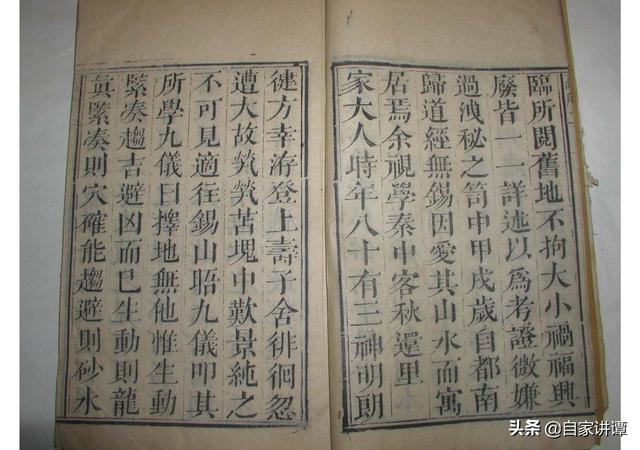 臨所閱舊地不拘大小禍福興
廢皆一一詳述以爲考證微嫌
過洩秘之笥中甲戌歲自都南
歸道經無錫因愛其山水而寓
居焉余視學秦中客秋還里
家大人時年八十有三神明朗
徤方幸洊登上壽子舍徘徊忽
遭大故煢煢苫塊中歎景純之
不可見適往錫山晤九儀叩其
所學九儀曰擇地無他惟生動
緊凑趨吉避凶而已生動則龍
眞緊凑則穴確能趨避則砂水
头条 @自家讲谭